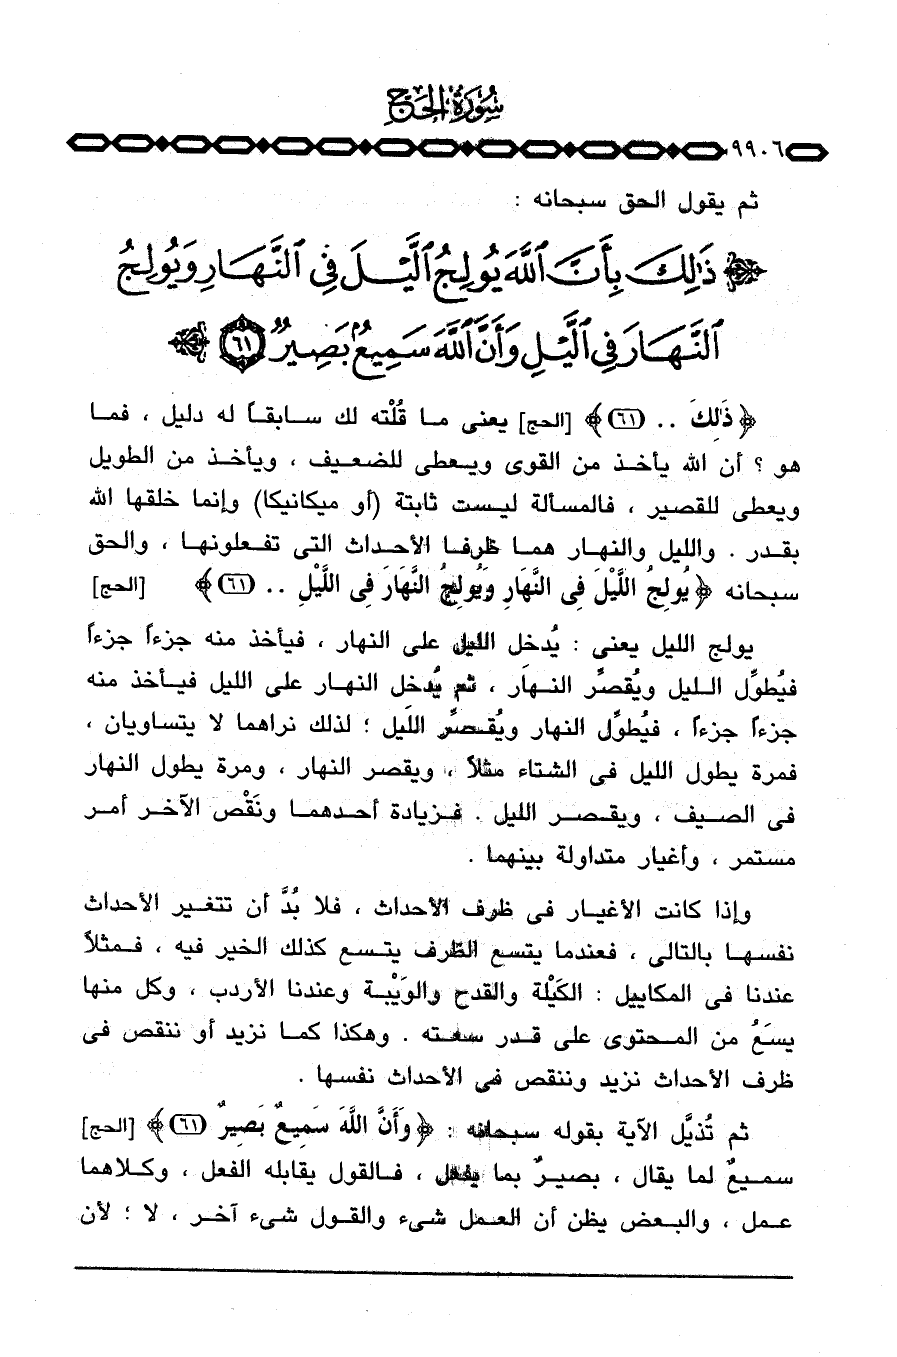 سُورَةُ الحَجّ
٩٩٠٦
ثم يقول الحق سبحانه :
﴿ ذَٰلِكَ بِأَنَّ ٱللَّهَ يُولِجُ ٱلَّيْلَ فِى ٱلنَّهَارِ وَيُولِجُ
ٱلنَّهَارَ فِى ٱلَّيْلِ وَأَنَّ ٱللَّهَ سَمِيعٌۢ بَصِيرٌ ٦١ ﴾
﴿ ذَٰلِكَ .. (٦١) ﴾ [الحج] يعنى ما قُلْته لك سابقاً له دليل ، فما
هو ؟ أن الله يأخذ من القوى ويعطى للضعيف ، ويأخذ من الطويل
ويعطى للقصير ، فالمسألة ليست ثابتة (أو ميكانيكا) وإنما خلقها الله
بقدر . والليل والنهار هما ظرفا الأحداث التى تفعلونها ، والحق
سبحانه ﴿ يُولِجُ اللَّيْلَ فِى النَّهَارِ وَيُولِجُ النَّهَارَ فِى اللَّيْلِ .. (٦١) ﴾ [الحج]
يولج الليل يعنى : يُدخل الليل على النهار ، فيأخذ منه جزءاً جزءاً
فيُطوِّل الليل ويُقصِّر النهار ، ثم يُدخل النهار على الليل فيأخذ منه
جزءاً جزءاً ، فيُطوِّل النهار ويُقصِّر الليل ؛ لذلك نراهما لا يتساويان ،
فمرة يطول الليل فى الشتاء مثلاً ، ويقصر النهار ، ومرة يطول النهار
فى الصيف ، ويقصر الليل . فزيادة أحدهما ونَقْص الآخر أمر
مستمر ، وأغيار متداولة بينهما .
وإذا كانت الأغيار فى ظرف الأحداث ، فلا بُدَّ أن تتغير الأحداث
نفسها بالتالى ، فعندما يتسع الظرف يتسع كذلك الخير فيه ، فمثلاً
عندنا فى المكاييل : الكَيْلة والقدح والوَيْبة وعندنا الأردب ، وكل منها
يسَعُ من المحتوى على قدر سعته . وهكذا كما نزيد أو ننقص فى
ظرف الأحداث نزيد وننقص فى الأحداث نفسها .
ثم تُذيَّل الآية بقوله سبحانه : ﴿ وَأَنَّ اللَّهَ سَمِيعٌ بَصِيرٌ (٦١) ﴾ [الحج]
سميعٌ لما يقال ، بصيرٌ بما يفعل ، فالقول يقابله الفعل ، وكلاهما
عمل ، والبعض يظن أن العمل شىء والقول شىء آخر ، لا ؛ لأن